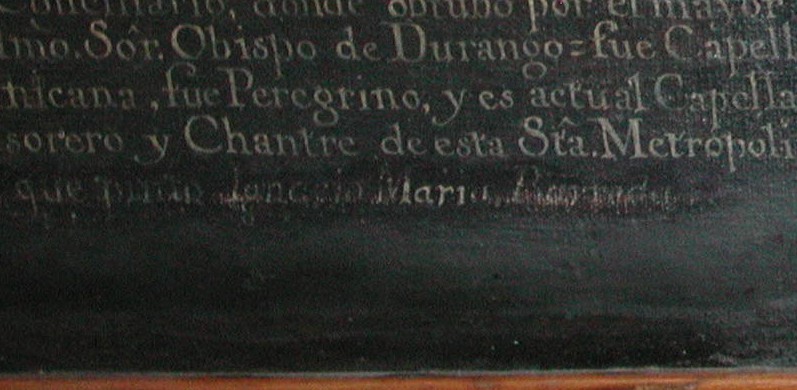 Conciliario, donde obtubo por el mayor
lmo. Sôr. Obispo de Durango=fue Capell
nicana, fue Peregrino, y es actual Capella
sorero y Chantre de esta Stâ. Metropoli
que pinto Ignacio Maria Barreda